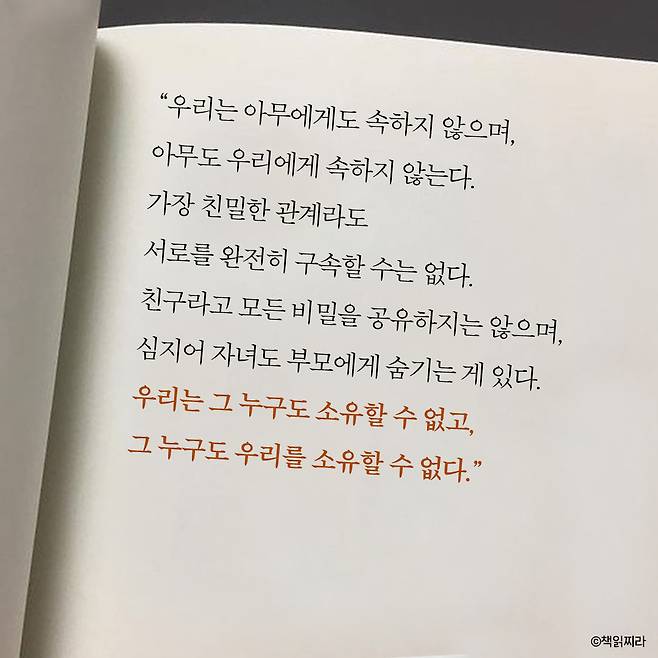 “우리는 아무에게도 속하지 않으며,
아무도 우리에게 속하지 않는다.
가장 친밀한 관계라도
서로를 완전히 구속할 수는 없다.
친구라고 모든 비밀을 공유하지는 않으며,
심지어 자녀도 부모에게 숨기는 게 있다.
우리는 그 누구도 소유할 수 없고,
그 누구도 우리를 소유할 수 없다.”
©책읽찌라